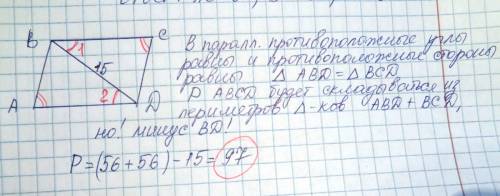 B
C
1
15
2
A
D
В паралл. противоположные углы
равны и противоположные стороны
равны △ ABD = △ BCD
P ABCD будет складываться из
периметров △-ков ABD + BCD,
но! минус BD!
P = (56 + 56) - 15 = 97